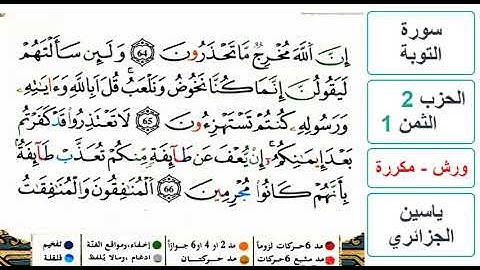 إِنَّ ٱللَّهَ مُخْرِجٌ مَّا تَحْذَرُونَ 64 وَلَئِن سَأَلْتَهُمْ
لَيَقُولُنَّ إِنَّمَا كُنَّا نَخُوضُ وَنَلْعَبُ قُلَ اَبِاللَّهِ وَءَايَٰتِهِۦ
وَرَسُولِهِۦ كُنتُمْ تَسْتَهْزِءُونَ 65 لَا تَعْتَذِرُواْ قَدْ كَفَرْتُم
بَعْدَ إِيمَٰنِكُمُۥٓ إِنْ يُّعْفَ عَن طَآئِفَةٍ مِّنكُمْ تُعَذَّبْ طَآئِفَةُۢ
بِأَنَّهُمْ كَانُواْ مُجْرِمِينَ 66 اَلْمُنَٰفِقُونَ وَالْمُنَٰفِقَٰتُ
مد 6 حركات لزوماً
مد 2 أو 4 أو 6 جوازاً
إخفاء، ومواقع الغنّة
تفخيم
مد مشبع 6 حركات
مد حركتان
ادغام، ومالا يلفظ
قلقلة
سورة
التوبة
الحزب 2
الثمن 1
ورش - مكررة
ياسين
الجزائري